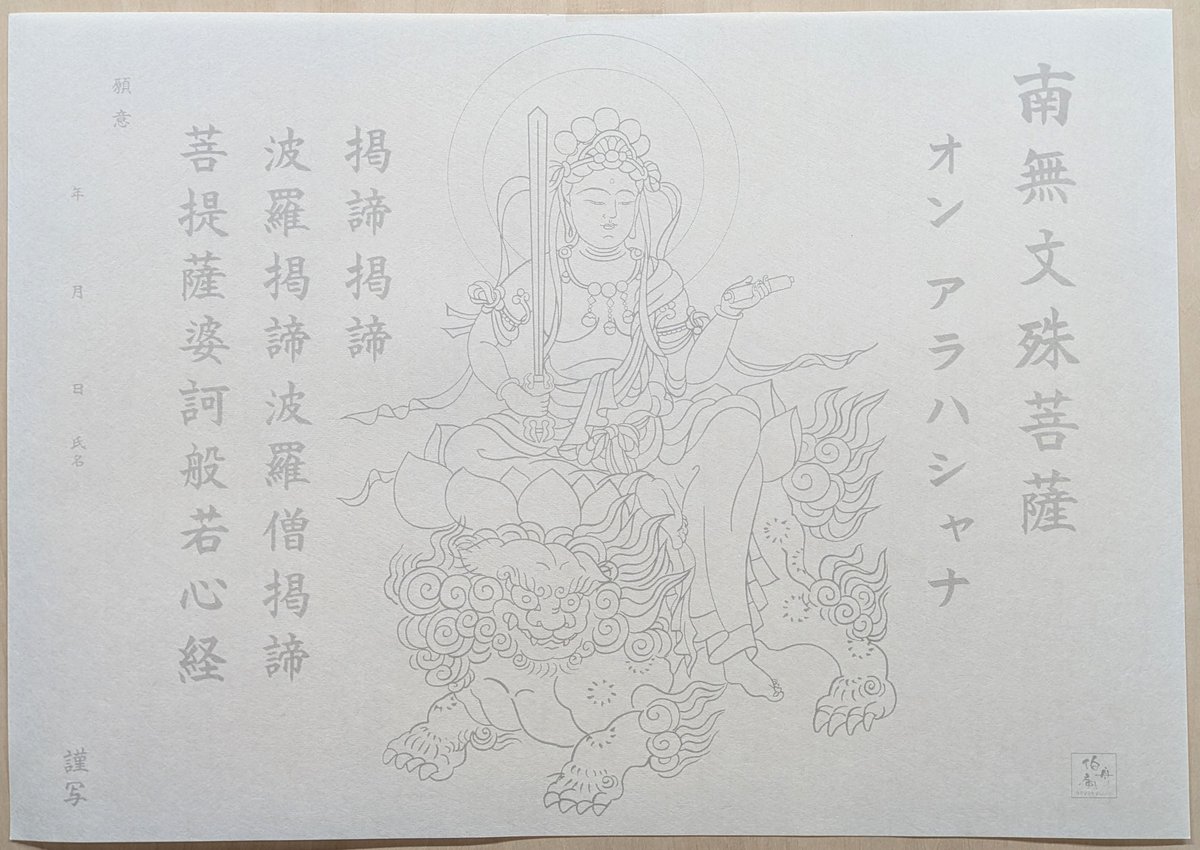 南無文殊菩薩
オン アラハシャナ
掲諦掲諦
波羅掲諦波羅僧掲諦
菩提薩婆訶般若心経
願意
年 月 日 氏名
謹写